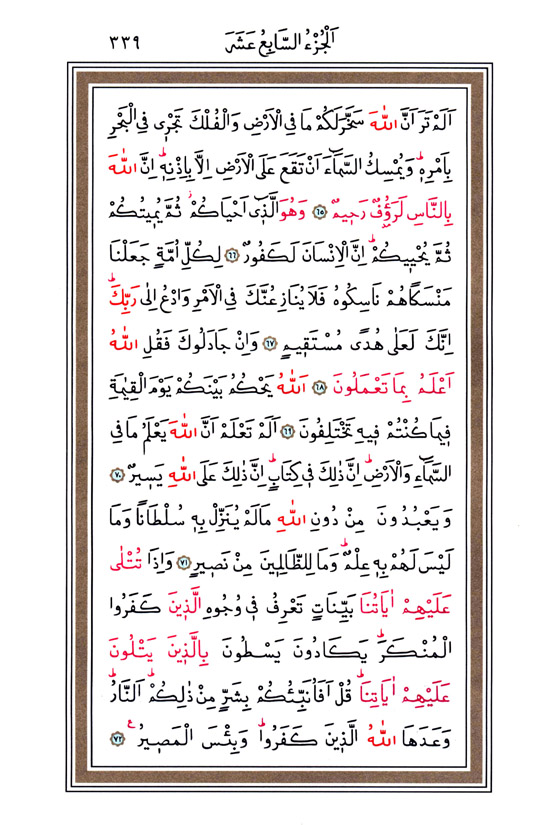 اَلْجُزْءُ السَّابِعُ عَشَرَ ٣٣٩
اَلَمْ تَرَ اَنَّ اللّٰهَ سَخَّرَ لَكُمْ مَا فِي الْاَرْضِ وَالْفُلْكَ تَجْر۪ي فِي الْبَحْرِ
بِاَمْرِه۪ۜ وَيُمْسِكُ السَّمَٓاءَ اَنْ تَقَعَ عَلَى الْاَرْضِ اِلَّا بِاِذْنِه۪ۜ اِنَّ اللّٰهَ
بِالنَّاسِ لَرَؤُ۫فٌ رَح۪يمٌ ﴿٦٥﴾ وَهُوَ الَّذ۪ٓي اَحْيَاكُمْۘ ثُمَّ يُم۪يتُكُمْ
ثُمَّ يُحْي۪يكُمْۜ اِنَّ الْاِنْسَانَ لَكَفُورٌ ﴿٦٦﴾ لِكُلِّ اُمَّةٍ جَعَلْنَا
مَنْسَكًا هُمْ نَاسِكُوهُ فَلَا يُنَازِعُنَّكَ فِي الْاَمْرِ وَادْعُ اِلٰى رَبِّكَۜ
اِنَّكَ لَعَلٰى هُدًى مُسْتَق۪يمٍ ﴿٦٧﴾ وَاِنْ جَادَلُوكَ فَقُلِ اللّٰهُ
اَعْلَمُ بِمَا تَعْمَلُونَ ﴿٦٨﴾ اَللّٰهُ يَحْكُمُ بَيْنَكُمْ يَوْمَ الْقِيٰمَةِ
ف۪يمَا كُنْتُمْ ف۪يهِ تَخْتَلِفُونَ ﴿٦٩﴾ اَلَمْ تَعْلَمْ اَنَّ اللّٰهَ يَعْلَمُ مَا فِي
السَّمَٓاءِ وَالْاَرْضِۜ اِنَّ ذٰلِكَ ف۪ي كِتَابٍۜ اِنَّ ذٰلِكَ عَلَى اللّٰهِ يَس۪يرٌ ﴿٧٠﴾
وَيَعْبُدُونَ مِنْ دُونِ اللّٰهِ مَا لَمْ يُنَزِّلْ بِه۪ سُلْطَانًا وَمَا
لَيْسَ لَهُمْ بِه۪ عِلْمٌۜ وَمَا لِلظَّالِم۪ينَ مِنْ نَص۪يرٍ ﴿٧١﴾ وَاِذَا تُتْلٰى
عَلَيْهِمْ اٰيَاتُنَا بَيِّنَاتٍ تَعْرِفُ ف۪ي وُجُوهِ الَّذ۪ينَ كَفَرُوا
الْمُنْكَرَۜ يَكَادُونَ يَسْطُونَ بِالَّذ۪ينَ يَتْلُونَ
عَلَيْهِمْ اٰيَاتِنَاۜ قُلْ اَفَاُنَبِّئُكُمْ بِشَرٍّ مِنْ ذٰلِكُمْۜ اَلنَّارُۜ
وَعَدَهَا اللّٰهُ الَّذ۪ينَ كَفَرُواۜ وَبِئْسَ الْمَص۪يرُ۟ ﴿٧٢﴾